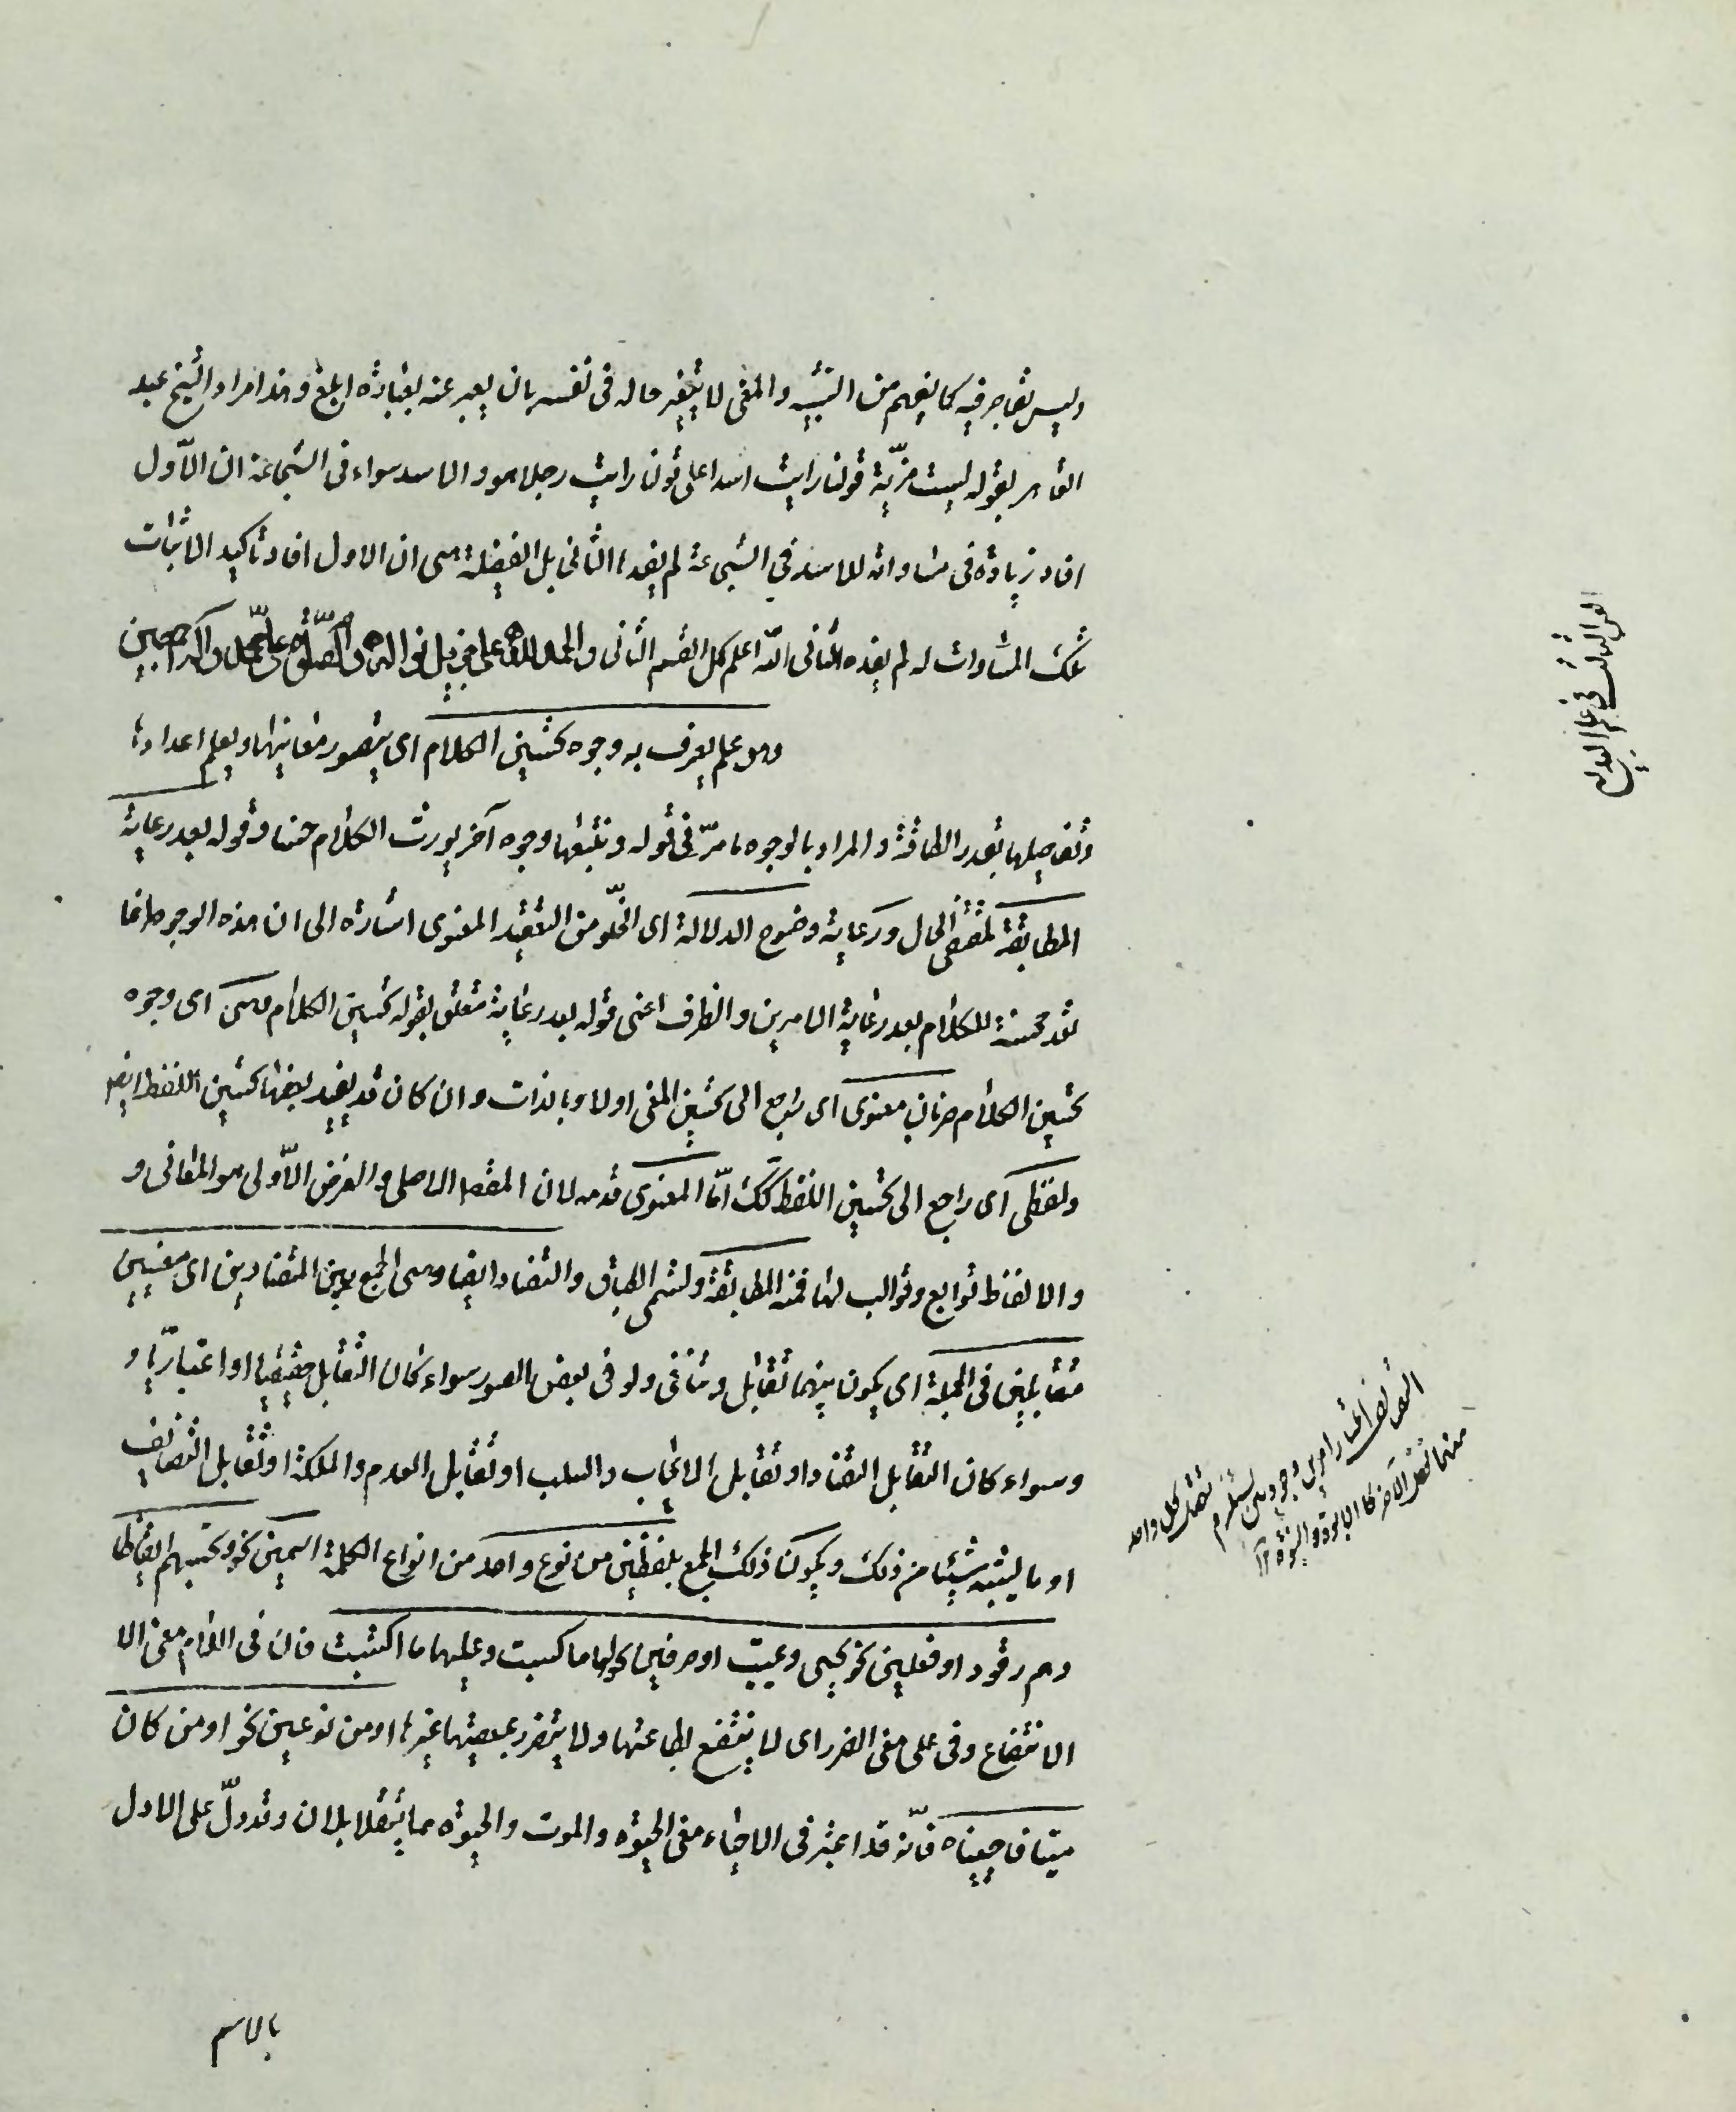 وليس بقاصر فيه كما يفهم من التشبيه والمعنى لا يتغير حاله في نفسه بان يعبر عنه بعبارة ابلغ وهذا مراد الشيخ عبد
القاهر بقوله ليست مزية قولنا رايت اسدا على قولنا رايت رجلا هو والاسد سواء في الشجاعة ان الاول
افاد زيادة في مساواته للاسد في الشجاعة لم يفدها الثاني بل الفضيلة هى ان الاول افاد تأكيد الاثبات
تلك المساوات له لم يفده الثاني والله اعلم كمل القسم الثاني والحمد لله على جزيل نواله والصلوة على محمد وآله اجمعين
وهو علم يعرف به وجوه تحسين الكلام اى يتصور معانيها ويعلم اعدادها
وتفاصيلها بقدر الطاقة والمراد بالوجوه ما مرّ في قوله وتتبعها وجوه آخر يورث الكلام حسنا وقوله بعد رعاية
المطابقة لمقتضى الحال ورعاية وضوح الدلالة اى الخلو من التعقيد المعنوى اشارة الى ان هذه الوجوه انما
تعد محسنة للكلام بعد رعاية الامرين والظرف اعنى قوله بعد رعاية متعلق بقوله تحسين الكلام وهى اى وجوه
تحسين الكلام ضربان معنوى اى راجع الى تحسين المعنى اولا وبالذات وان كان قد يفيد بعضها تحسين اللفظ ايضا
ولفظى اى راجع الى تحسين اللفظ كك امّا المعنوى قدمه لان المقصد الاصلى والغرض الاولى هو المعانى و
والالفاظ توابع وقوالب لها فمنه المطابقة وتسمى الطباق والتضاد ايضا وهى الجمع بين المتضادين اى معنيين
متقابلين في الجملة اى يكون بينهما تقابل وتنافى ولو في بعض الصور سواء كان التقابل حقيقيا او اعتباريا و
وسواء كان التقابل التضاد او تقابل الايجاب والسلب او تقابل العدم والملكة او تقابل التضايف
او ما يشبه شيئا من ذلك ويكون ذلك الجمع بلفظين من نوع واحد من انواع الكلمة اسمين نحو وتحسبهم ايقاظا
وهم رقود او فعلين نحو يحيى ويميت او حرفين نحو لها ما كسبت وعليها ما اكتسبت فان في اللام معنى الا
الانتفاع وفى على معنى الضرر اى لا ينتفع بطاعتها ولا يتضرر بمعصيتها غيرها او من نوعين نحو او من كان
ميتا فاحييناه فانّه قد اعتبر في الاحياء معنى الحيوة والموت والحيوة مما يتقابلان وقد دلّ على الاول
بالاسم
الفن الثالث في علم البديع
امرين وجوديين يستلزم تعقل كل واحد
منهما تعقل الآخر كالابوة والبنوة